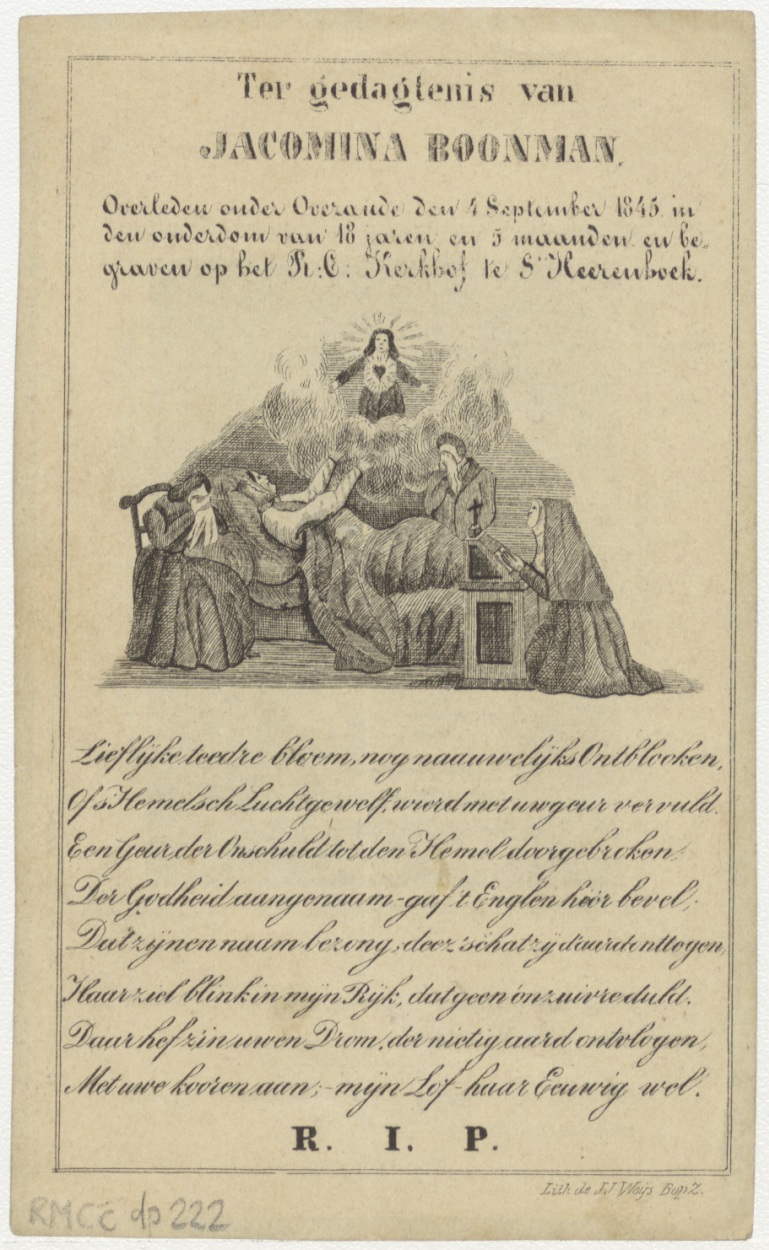 Ter gedagtenis van
JACOMINA BOONMAN.
Overleden onder Overande den 4 September 1845 in
den onderdom van 18 jaren en 5 maanden en be-
graven op het R:C: Kerkhof te S'Heerenhoek.
Lieflijke teedre bloem, nog naauwelijks Ontblooken,
Of s'Hemelsch Luchtgewelf, wierd met uw geur vervuld.
Een Geur, der Onschuld tot den Hemel doorgebroken.
Der Godheid aangenaam - gaf 't Englen heir bevel,
Dat zijnen naam bezong, deez' schat zij d'aard onttogen,
Haar ziel blink in mijn Rijk, dat geen onzuivre duld.
Daar hef z'in uwen Drom, der nietig aard ontvlogen,
Met uwe kooren aan; - mijn Lof - haar Eeuwig wel.
R. I. P.
Lith de J.J Weijs Bop Z.
RMCC dp 222